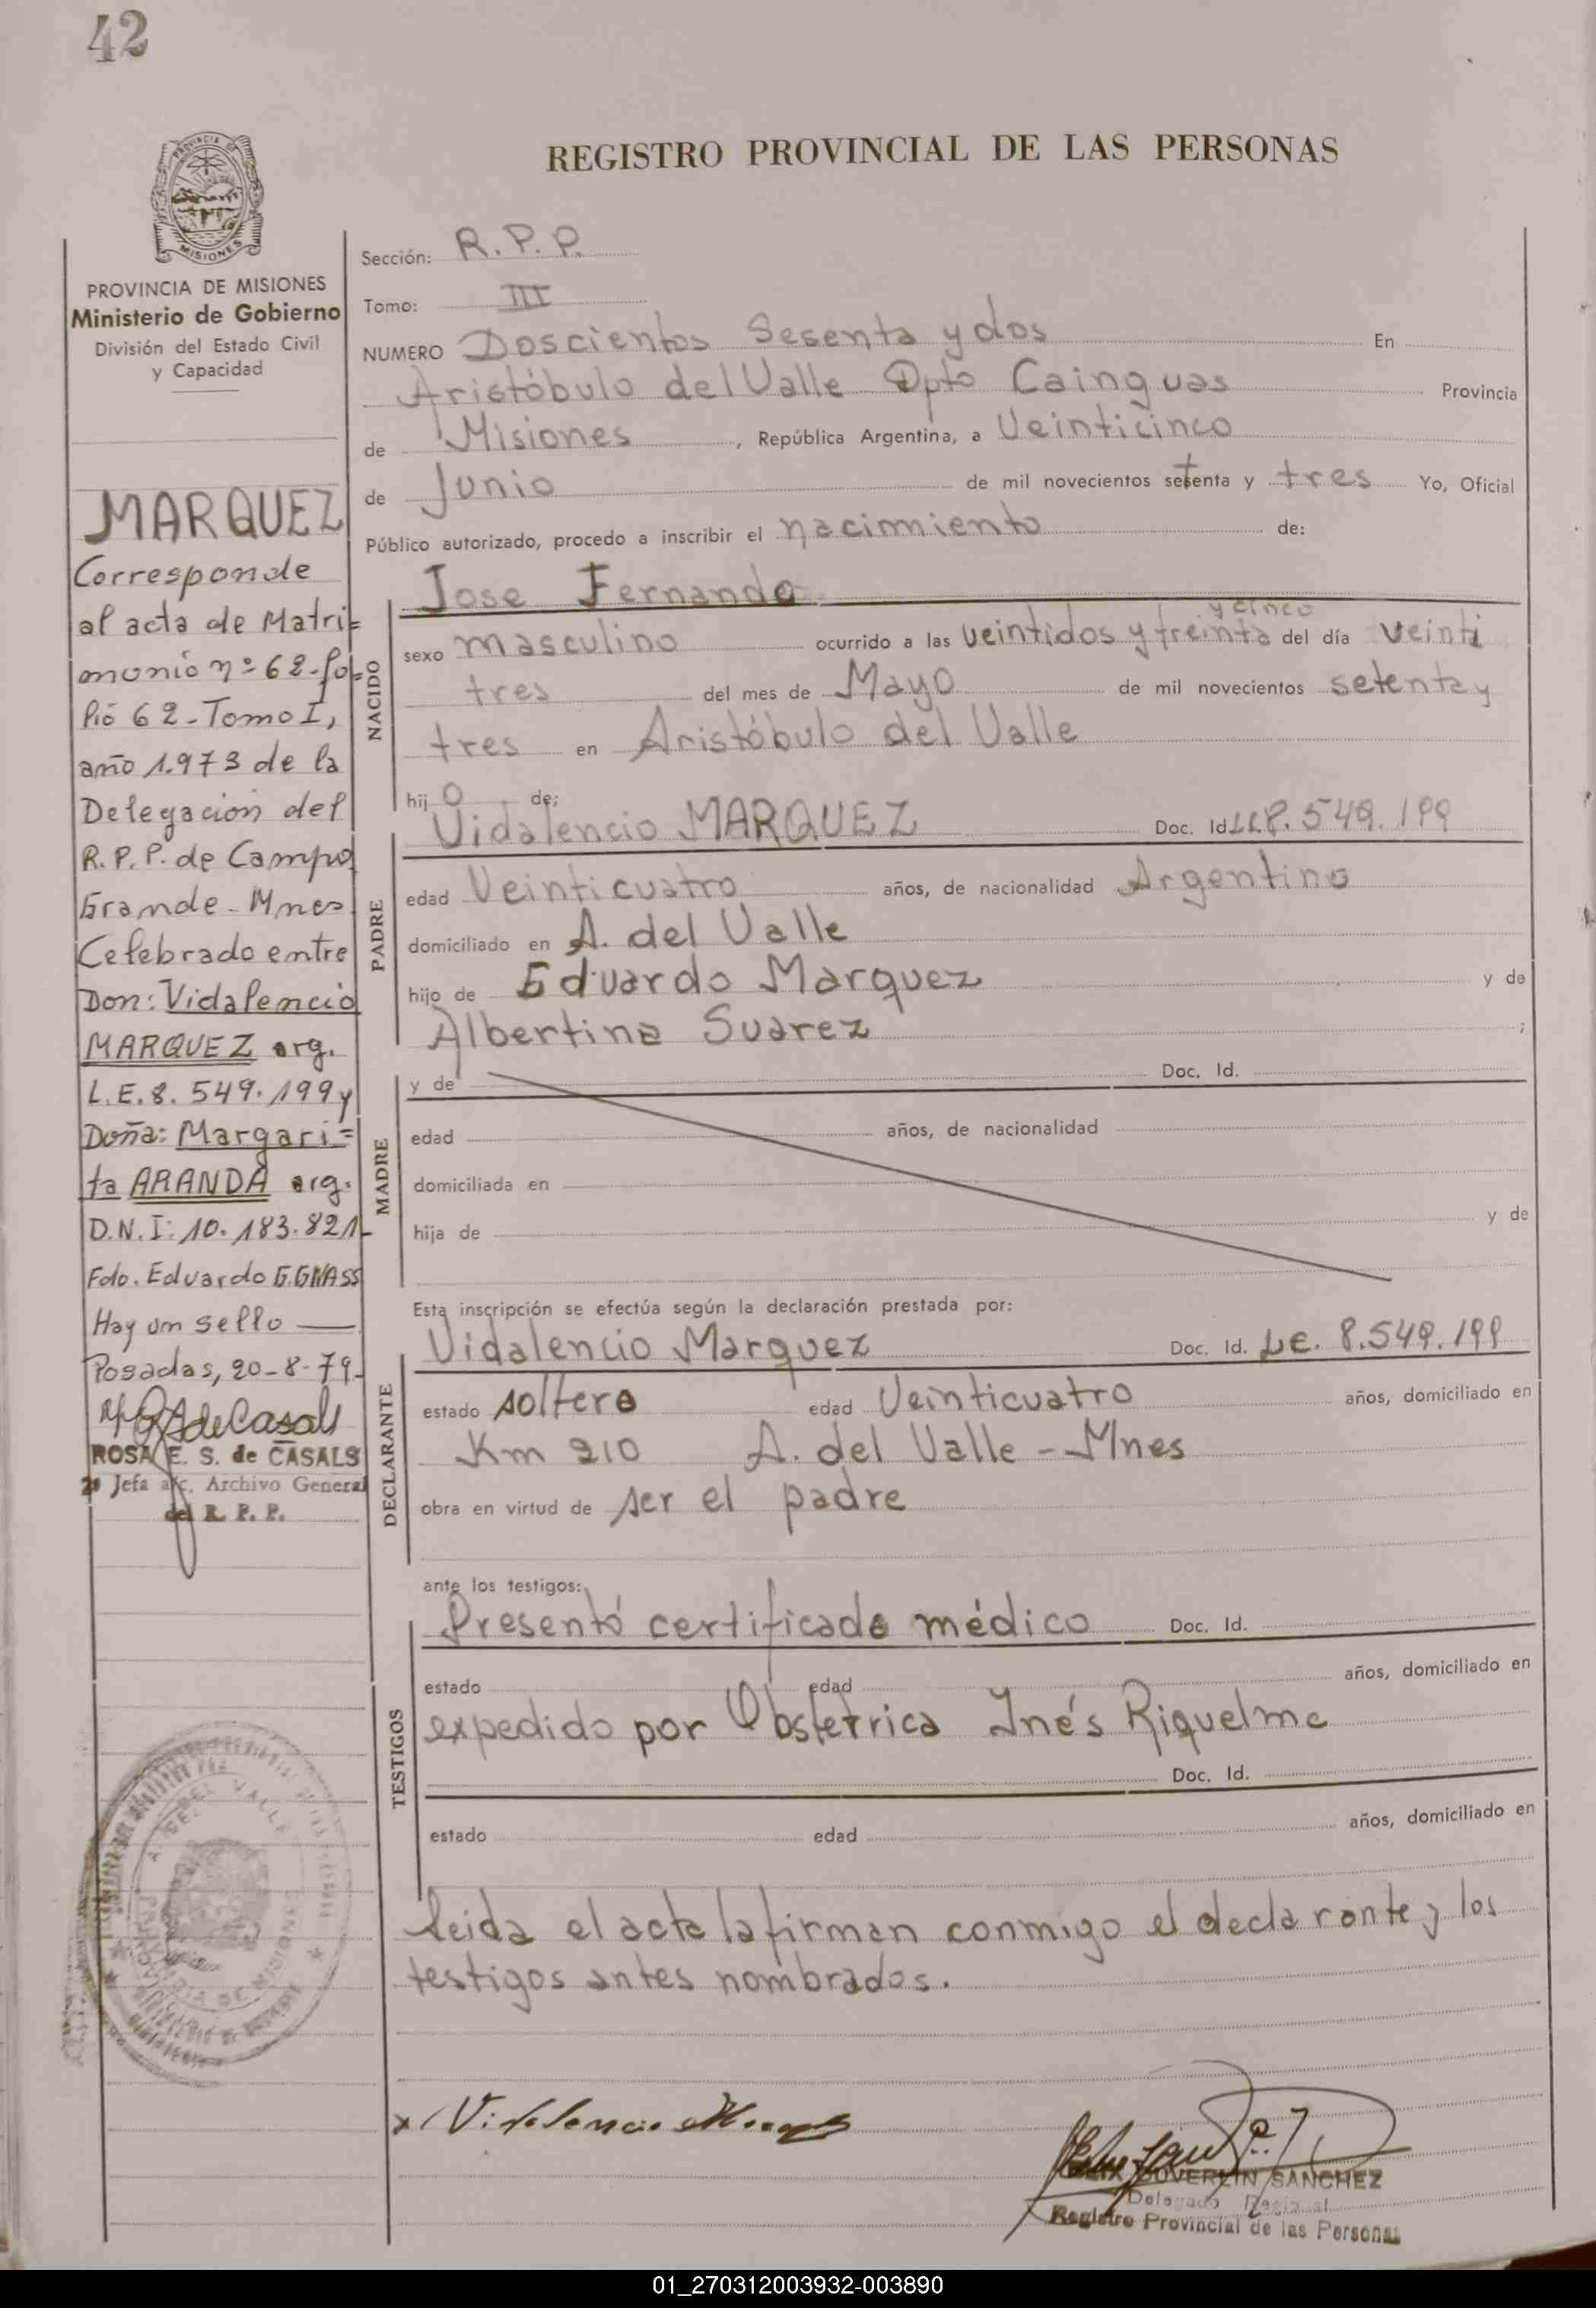 42
REGISTRO PROVINCIAL DE LAS PERSONAS
PROVINCIA DE
MISIONES
PROVINCIA DE MISIONES
Ministerio de Gobierno
División del Estado Civil
y Capacidad
MARQUEZ
Corresponde
al acta de Matri=
monio nº 62-fo=
lio 62-Tomo I,
año 1.973 de la
Delegación del
R.P.P. de Campo
Grande-Mnes
Celebrado entre
Don: Vidalencio
MARQUEZ arg.
L.E.8.549.199 y
Doña: Margari=
ta ARANDA arg.
D.N.I: 10.183.821-
Fdo. Eduardo G.
Hay un sello —
Posadas, 20-8-79-
ROSA E. S. de CASALS
Jefa a/c. Archivo General
del R. P. P.
Sección: R.P.P.
Tomo: III
NUMERO Doscientos Sesenta y dos En
Aristóbulo del Valle Dpto Cainguas Provincia
de Misiones, República Argentina, a Veinticinco
de Junio de mil novecientos setenta y tres Yo, Oficial
Público autorizado, procedo a inscribir el nacimiento de:
NACIDO
Jose Fernando
y cinco
sexo masculino ocurrido a las veintidos y treinta del día veinti
tres del mes de Mayo de mil novecientos setenta y
tres en Aristóbulo del Valle
hijo de:
PADRE
Vidalencio MARQUEZ Doc. Id. 8.549.199
edad Veinticuatro años, de nacionalidad Argentino
domiciliado en A. del Valle
hijo de Eduardo Marquez y de
Albertina Suarez ;
MADRE
y de Doc. Id.
edad años, de nacionalidad
domiciliada en
hija de y de
Esta inscripción se efectúa según la declaración prestada por:
DECLARANTE
Vidalencio Marquez Doc. Id. L.E. 8.549.199
estado soltero edad Veinticuatro años, domiciliado en
Km 210 A. del Valle - Mnes
obra en virtud de ser el padre
ante los testigos:
TESTIGOS
Presentó certificado médico Doc. Id.
estado edad años, domiciliado en
expedido por Obstetrica Inés Riquelme
Doc. Id.
estado edad años, domiciliado en
leida el acta la firman conmigo el declarante y los
testigos antes nombrados.
x Vidalencio Marquez
SANCHEZ
Delegado Regional
Registro Provincial de las Personas
01_270312003932-003890